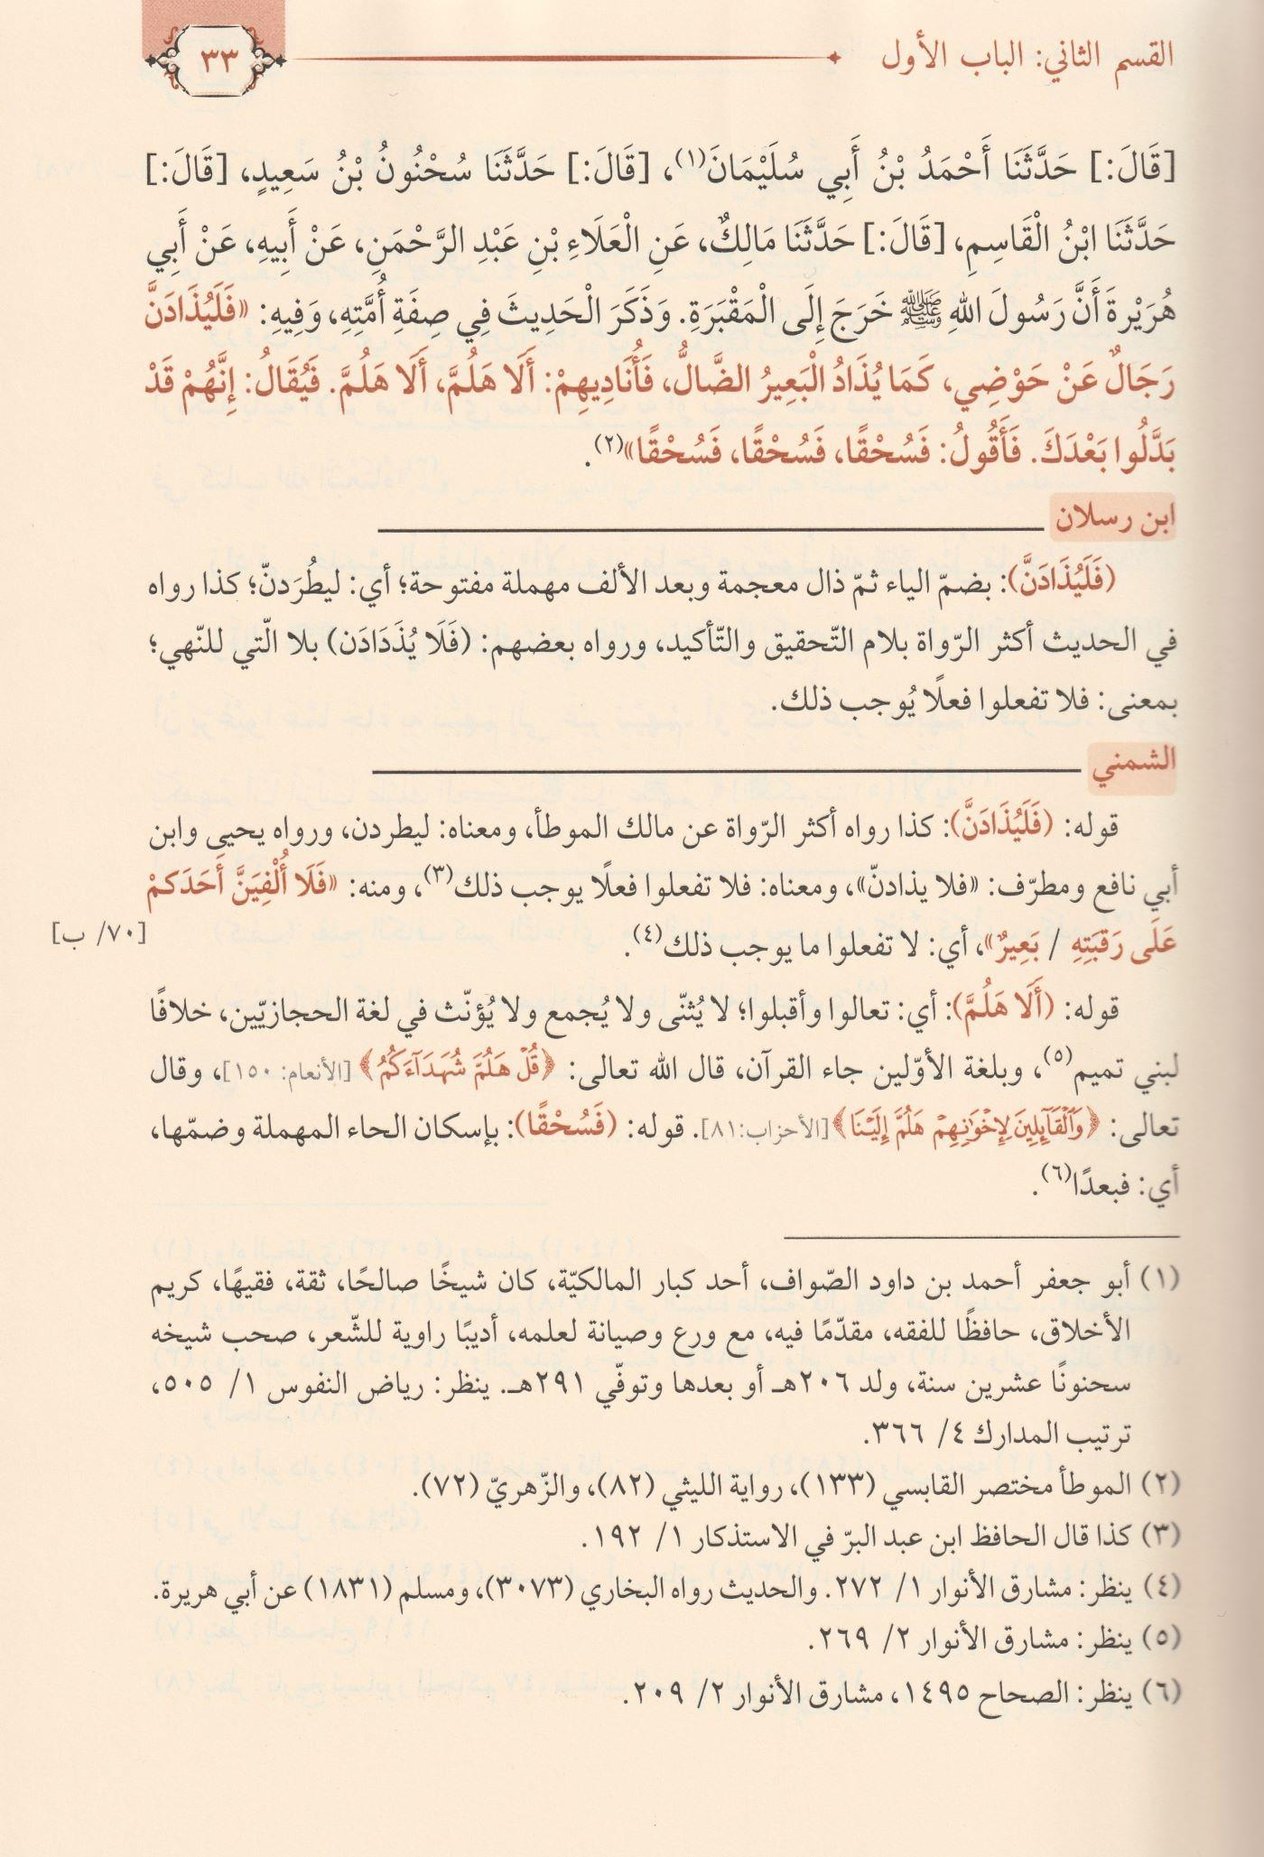 القسم الثاني: الباب الأول
٣٣
[قَالَ:] حَدَّثَنَا أَحْمَدُ بْنُ أَبِي سُلَيْمَانَ(١)، [قَالَ:] حَدَّثَنَا سُحْنُونُ بْنُ سَعِيدٍ، [قَالَ:]
حَدَّثَنَا ابْنُ الْقَاسِمِ، [قَالَ:] حَدَّثَنَا مَالِكٌ، عَنِ الْعَلَاءِ بْنِ عَبْدِ الرَّحْمَنِ، عَنْ أَبِيهِ، عَنْ أَبِي
هُرَيْرةَ أَنَّ رَسُولَ اللهِ ﷺ خَرَجَ إِلَى الْمَقْبَرَةِ. وَذَكَرَ الْحَدِيثَ فِي صِفَةِ أُمَّتِهِ، وَفِيهِ: «فَلَيُذَادَنَّ
رَجَالٌ عَنْ حَوْضِي، كَمَا يُذَادُ الْبَعِيرُ الضَّالُّ، فَأُنَادِيهِمْ: أَلَا هَلُمَّ، أَلَا هَلُمَّ. فَيُقَالُ: إِنَّهُمْ قَدْ
بَدَّلُوا بَعْدَكَ. فَأَقُولُ: فَسُحْقًا، فَسُحْقًا، فَسُحْقًا»(٢).
ابن رسلان
(فَلَيُذَادَنَّ): بضمّ الياء ثمّ ذال معجمة وبعد الألف مهملة مفتوحة؛ أي: ليطُرَدنّ؛ كذا رواه
في الحديث أكثر الرّواة بلام التّحقيق والتّأكيد، ورواه بعضهم: (فَلَا يُذَدَادَن) بلا الّتي للنّهي؛
بمعنى: فلا تفعلوا فعلًا يُوجب ذلك.
الشمني
قوله: (فَلَيُذَادَنَّ): كذا رواه أكثر الرّواة عن مالك الموطأ، ومعناه: ليطردن، ورواه يحيى وابن
أبي نافع ومطرّف: «فلا يذادنّ»، ومعناه: فلا تفعلوا فعلًا يوجب ذلك(٣)، ومنه: «فَلَا أُلْفِيَنَّ أَحَدَكمْ
عَلَى رَقبَتِهِ / بَعِيرٌ»، أي: لا تفعلوا ما يوجب ذلك(٤).
[٧٠/ ب]
قوله: (أَلَا هَلُمَّ): أي: تعالوا وأقبلوا؛ لا يُثنّى ولا يُجمع ولا يُؤنّث في لغة الحجازيّين، خلافًا
لبني تميم(٥)، وبلغة الأوّلين جاء القرآن، قال الله تعالى: ﴿قُلۡ هَلُمَّ شُهَدَآءَكُمُ﴾ [الأنعام: ١٥٠]، وقال
تعالى: ﴿وَٱلۡقَآئِلِينَ لِإِخۡوَٰنِهِمۡ هَلُمَّ إِلَيۡنَا﴾ [الأحزاب:٨١]. قوله: (فَسُحْقًا): بإسكان الحاء المهملة وضمّها،
أي: فبعدًا(٦).
(١) أبو جعفر أحمد بن داود الصّواف، أحد كبار المالكيّة، كان شيخًا صالحًا، ثقة، فقيهًا، كريم
الأخلاق، حافظًا للفقه، مقدّمًا فيه، مع ورع وصيانة لعلمه، أديبًا راوية للشّعر، صحب شيخه
سحنونًا عشرين سنة، ولد ٢٠٦هـ أو بعدها وتوفّي ٢٩١هـ. ينظر: رياض النفوس ١/ ٥٠٥،
ترتيب المدارك ٤/ ٣٦٦.
(٢) الموطأ مختصر القابسي (١٣٣)، رواية الليثي (٨٢)، والزّهريّ (٧٢).
(٣) كذا قال الحافظ ابن عبد البرّ في الاستذكار ١/ ١٩٢.
(٤) ينظر: مشارق الأنوار ١/ ٢٧٢. والحديث رواه البخاري (٣٠٧٣)، ومسلم (١٨٣١) عن أبي هريرة.
(٥) ينظر: مشارق الأنوار ٢/ ٢٦٩.
(٦) ينظر: الصحاح ١٤٩٥، مشارق الأنوار ٢/ ٢٠٩.